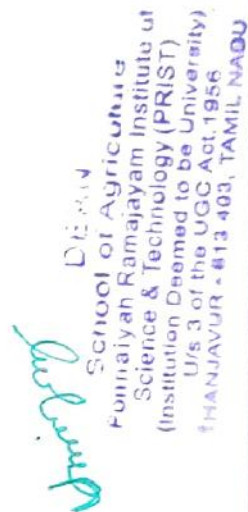 DEAN
School of Agriculture
Ponnaiyah Ramajayam Institute of
Science & Technology (PRIST)
(Institution Deemed to be University)
U/s 3 of the UGC Act, 1956
THANJAVUR - 613 403, TAMIL NADU